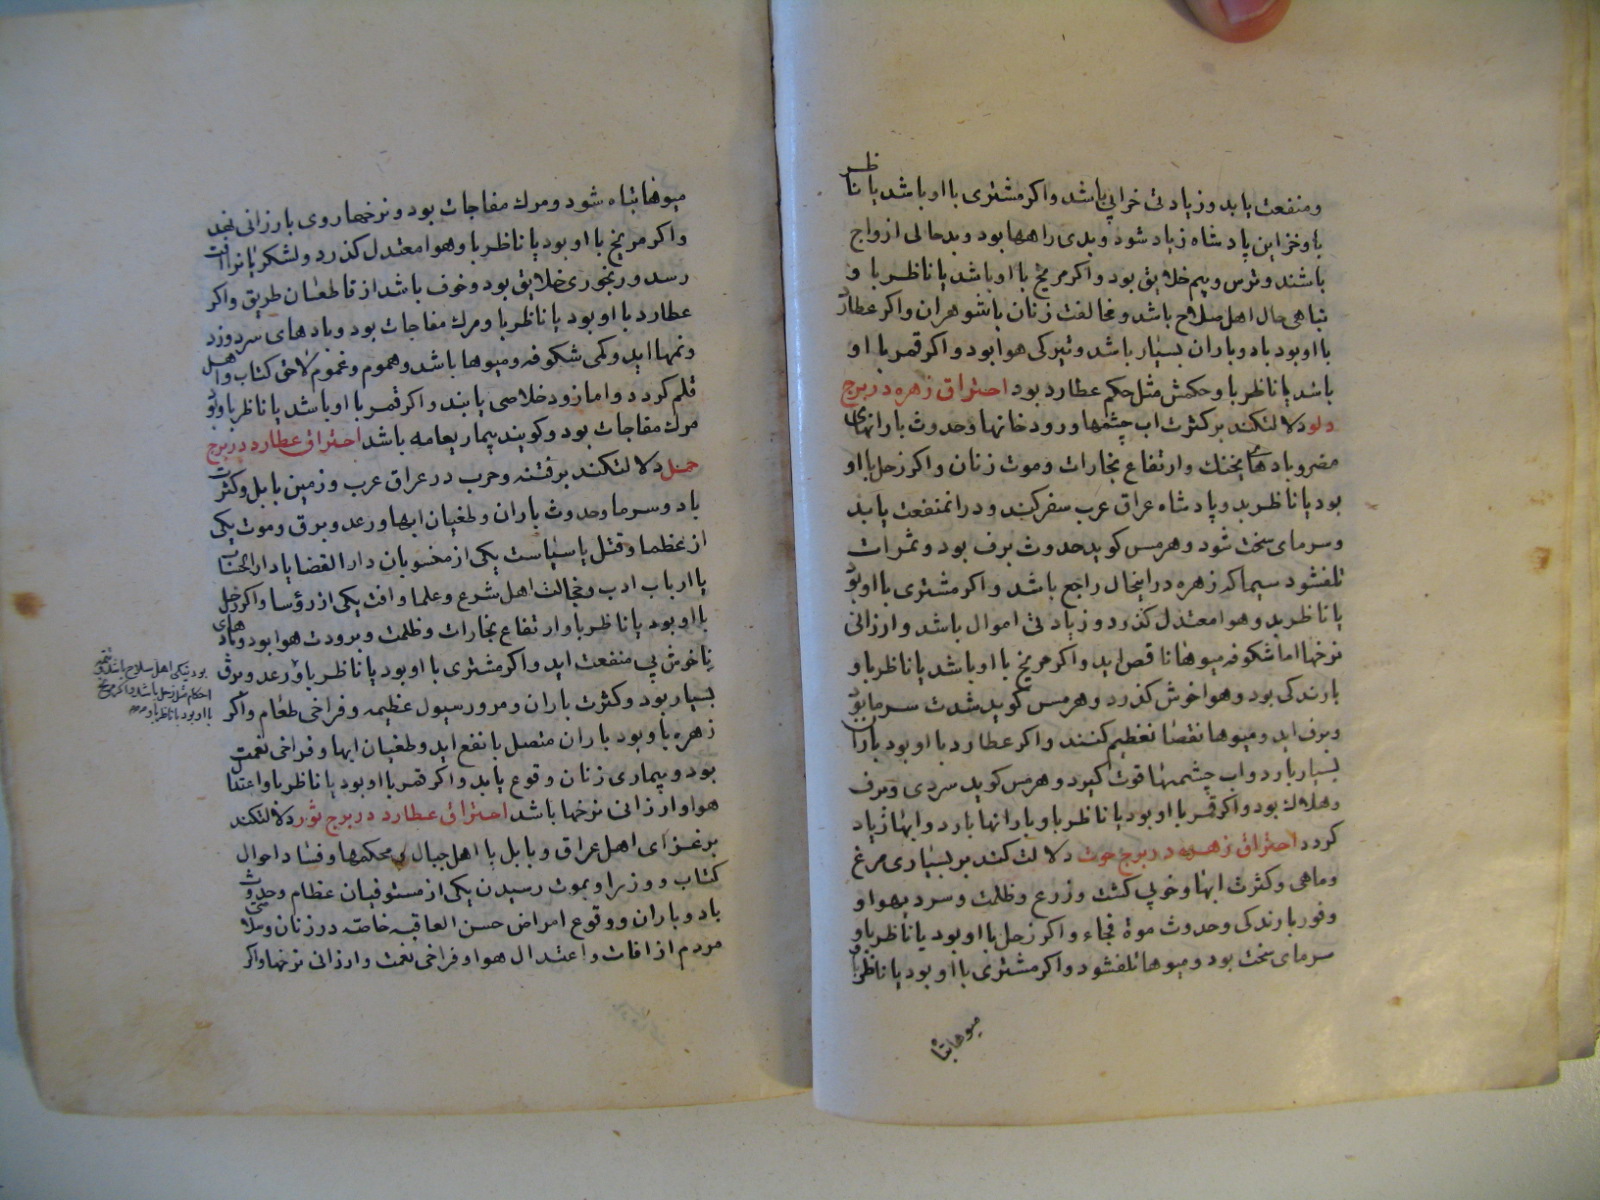 ومنفعت یابد وزیادتی خرابی باشد واکر مشتری با او باشد یا ناظر
با وخزاین پادشاه زیاد شود وبدی راهها بود وبدحالی ازواج
باشند وترس وبیم خلایق بود واکر مریخ با او باشد یا ناظر با و
تباهی حال اهل صلاح باشد ومخالفت زنان با شوهران واکر عطارد
با او بود باد وباران بسیار باشد وتیرکی هوا بود واکر قمر با او
باشد یا ناظر با و حکمش مثل حکم عطارد بود احتراق زهره در برج
دلو دلالت کند بر کثرت اب چشمها ورودخانها وحدوث بارانهای
مضر وبادهای خنك وارتفاع بخارات وموت زنان واکر زحل با او
بود یا ناظر بد و پادشاه عراق عرب سفر کند ودران منفعت یابد
وسرمای سخت شود وهرمس کوید حدوث برف بود وثمرات
تلف شود سیما که زهره دراینحال راجع باشد واکر مشتری با او بود
یا ناظر بد و هوا معتدل کذرد وزیادتی اموال باشد وارزانی
نرخها اما شکوفه میوها ناقص اید واکر مریخ با او باشد یا ناظر با و
بارندکی بود وهوا خوش کذرد وهرمس کوید شدت سرما بود
وبرف اید ومیوها نقصان عظیم کنند واکر عطارد با او بود باران
بسیار بارد واب چشمها قوت کیرد وهرمس کوید سردی وبرف
وهلاك بود واکر قمر با او بود یا ناظر با و بارانها بارد وابها زیاد
کردد احتراق زهره در برج حوت دلالت کند بر بسیاری مرغ
وماهی وکثرت ابها وخوبی کشت وزرع وظلمت وسردی هوا و
وفور بارندکی وحدوث موة فجاء واکر زحل با او بود یا ناظر با و
سرمای سخت بود ومیوها تلف شود واکر مشتری با او بود یا ناظر با و
میوها تبا
میوها تباه شود ومرك مفاجات بود ونرخها روی بارزانی نهد
واکر مریخ با او بود یا ناظر با و هوا معتدل کذرد ولشکریانرا افت
رسد ورنجوری خلایق بود وخوف باشد از قاطعان طریق واکر
عطارد با او بود یا ناظر با و مرك مفاجات بود وبادهای سرد وزد
ونمها اید وکمی شکوفه ومیوها باشد وهموم وغموم لاحق کتاب واهل
قلم کردد واما زود خلاصی یابند واکر قمر با او باشد یا ناظر با و بود
مرك مفاجات بود وکویند بیماریعامه باشد احتراق عطارد در برج
حمل دلالت کند بر فتنه وحرب در عراق عرب وزمین بابل وکثرت
باد وسرما وحدوث باران وطغیان ابها ورعد وبرق وموت یکی
از عظما وقتل یا سیاست یکی از منسوبان دار القضا یا دار الحساب
یا ارباب ادب وخجالت اهل شرع وعلما وافت یکی از رؤسا واکر زحل
با او بود یا ناظر با و ارتفاع بخارات وظلمت وبرودت هوا بود وبادهای
ناخوش بی منفعت اید واکر مشتری با او بود یا ناظر با و رعد وبرق
بسیار بود وکثرت باران ومرور سیول عظیمه وفراخی طعام واکر
زهره با و بود باران متصل با نفع اید وطغیان ابها وفراخی نعمت
بود وبیماری زنان وقوع یابد واکر قمر با او بود یا ناظر با و اعتدال
هوا وارزانی نرخها باشد احتراق عطارد در برج ثور دلالت کند
بر غزای اهل عراق وبابل با اهل جبال محکمها وفساد احوال
کتاب ووزرا وبموت رسیدن یکی از مستوفیان عظام وحدوث
باد وباران ووقوع امراض حسن العاقبه خاصه در زنان وسلامتی
مردم از افات واعتدال هوا وفراخی نعمت وارزانی نرخها واکر
بود نیکی اهل سلاح باشد وبقیه
احکام مثل زحل باشد واکر مریخ
با او بود یا ناظر با و